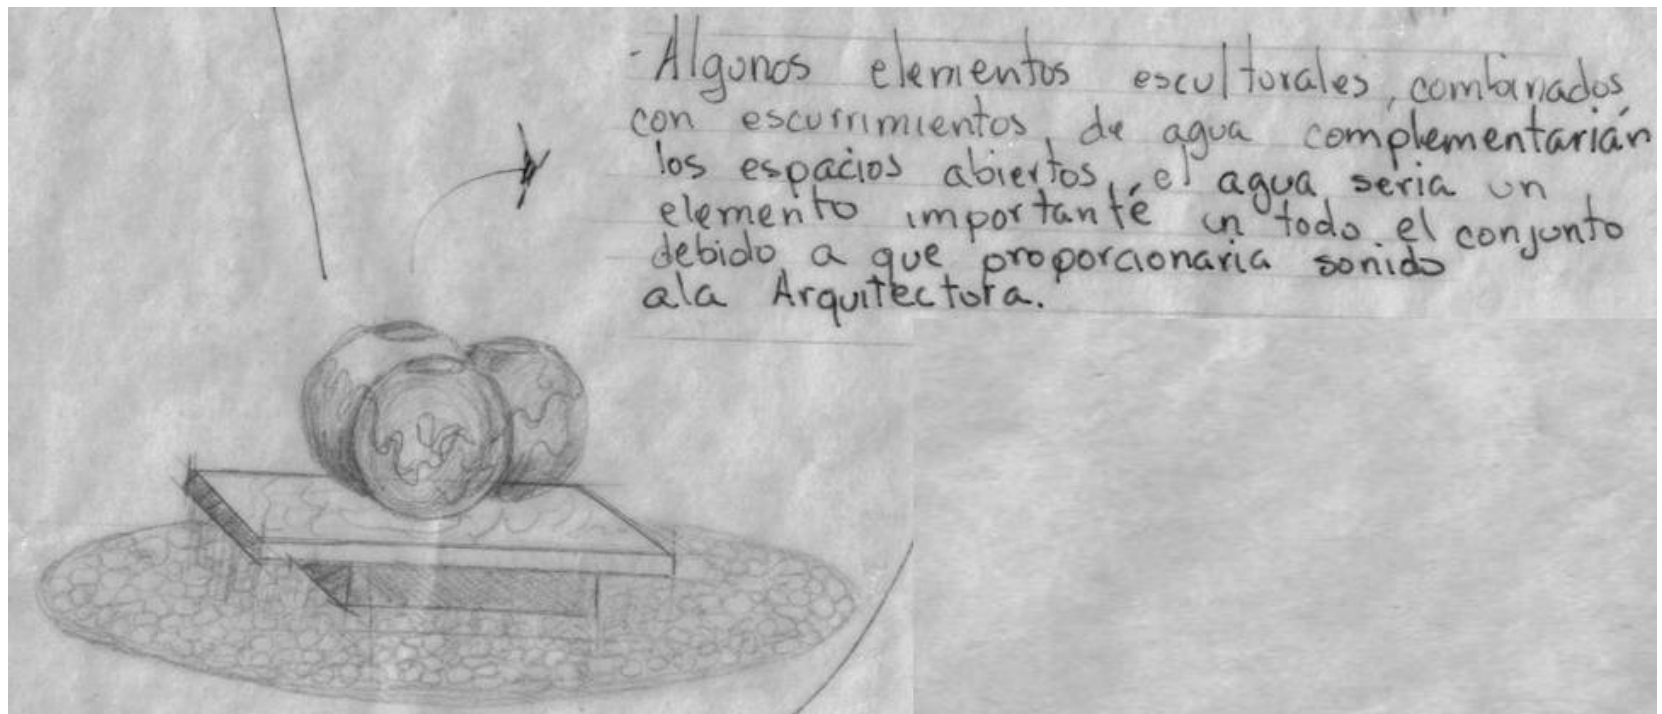 - Algunos elementos esculturales, combinados
con escurrimientos de agua complementarián
los espacios abiertos, el agua seria un
elemento importante en todo el conjunto
debido a que proporcionaria sonido
ala Arquitectura.